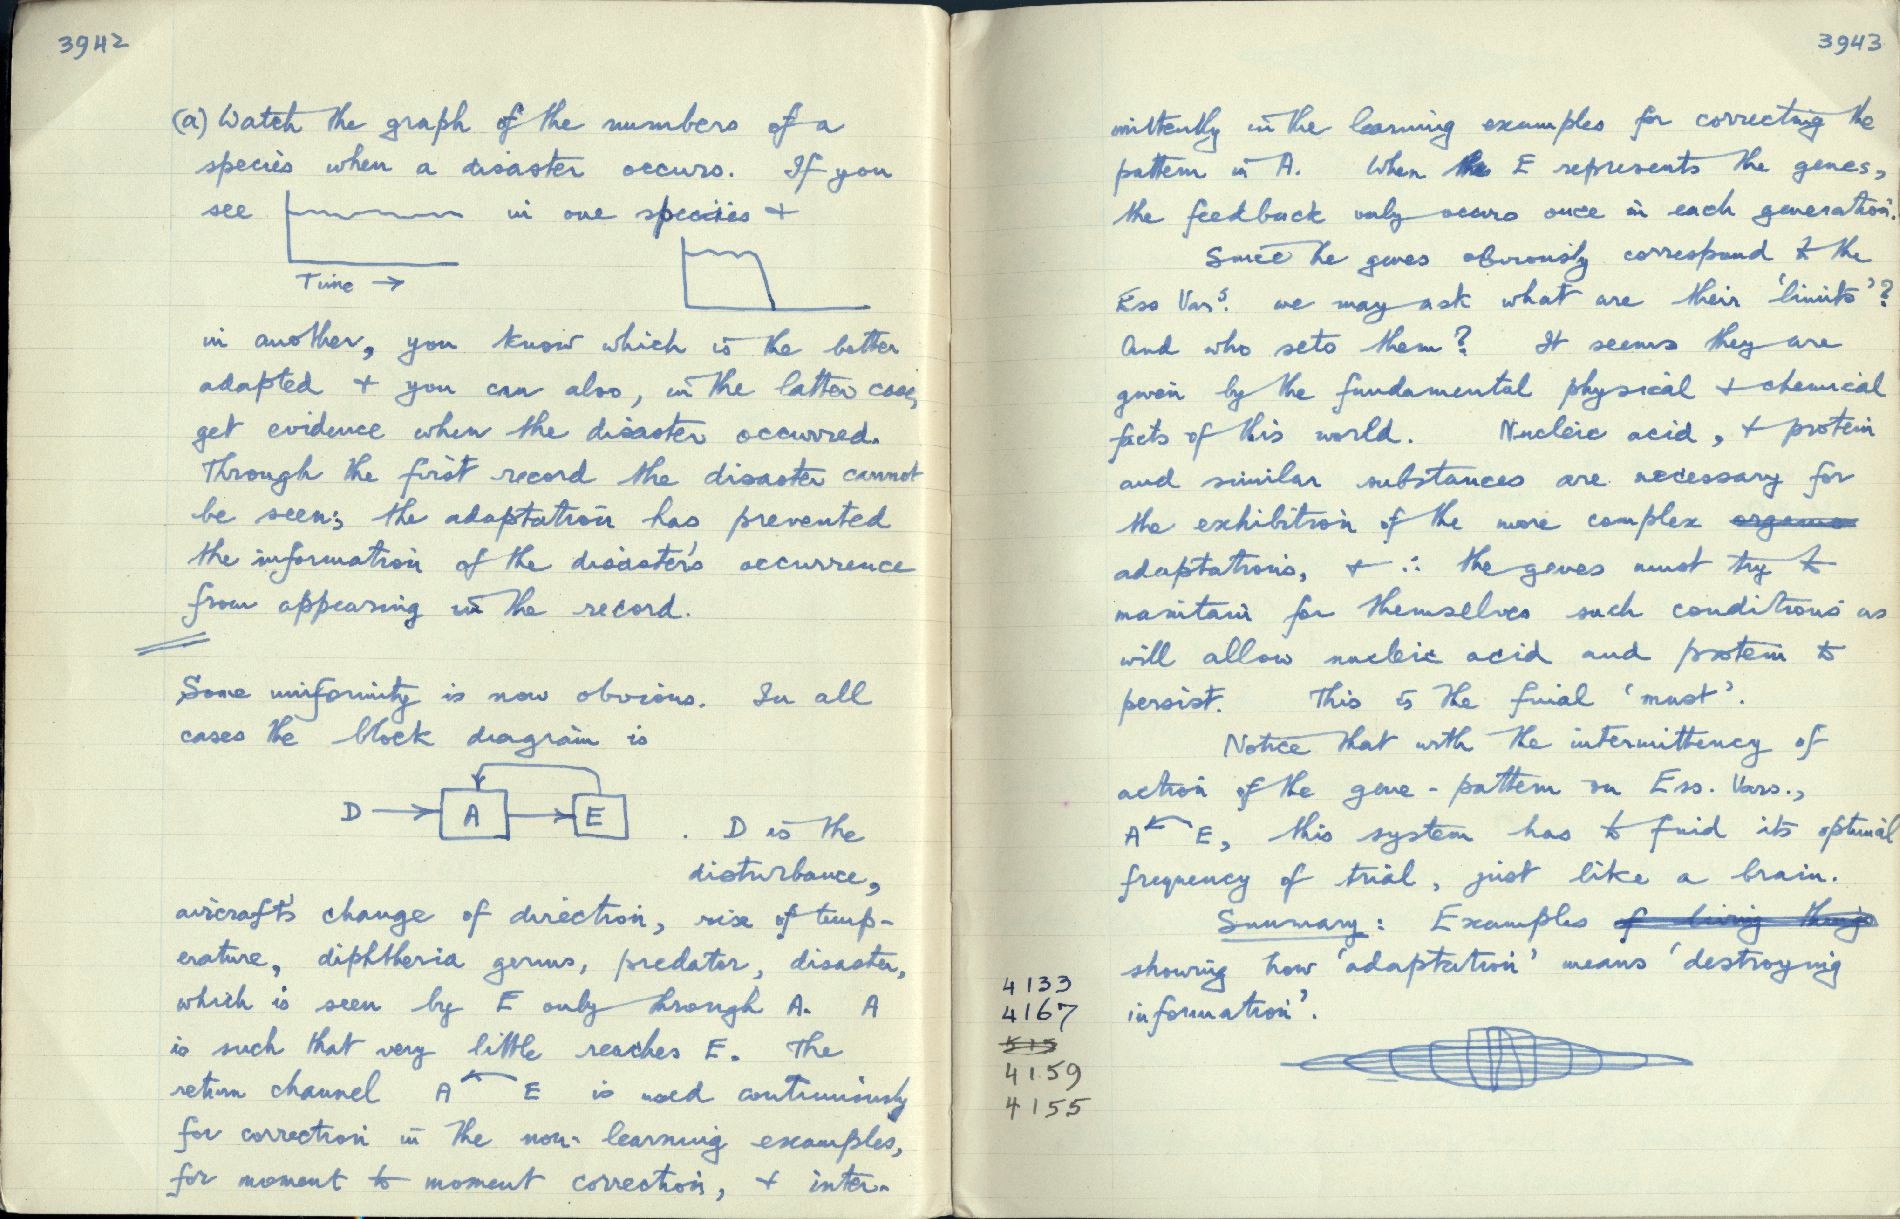 3942
(a) Watch the graph of the numbers of a
species when a disaster occurs. If you
see in one species +
Time →
in another, you know which is the better
adapted + you can also, in the latter case,
get evidence when the disaster occurred.
Through the first record the disaster cannot
be seen; the adaptation has prevented
the information of the disaster's occurrence
from appearing in the record.
Some uniformity is now obvious. In all
cases the block diagram is
D → A → E . D is the
disturbance,
aircraft's change of direction, rise of temp-
erature, diphtheria germs, predator, disaster,
which is seen by E only through A. A
is such that very little reaches E. The
return channel A ← E is used continuously
for correction in the non-learning examples,
for moment to moment correction, + inter-
3943
mittently in the learning examples for correcting the
pattern in A. When the E represents the genes,
the feedback only occurs once in each generation.
Since the genes obviously correspond to the
Ess Vars. we may ask what are their 'limits'?
And who sets them? It seems they are
given by the fundamental physical + chemical
facts of this world. Nucleic acid, + protein
and similar substances are necessary for
the exhibition of the more complex organs
adaptations, + ∴ the genes must try to
maintain for themselves such conditions as
will allow nucleic acid and protein to
persist. This is the final 'must'.
Notice that with the intermittency of
action of the gene-pattern on Ess. Vars.,
A ← E, this system has to find its optimal
frequency of trial, just like a brain.
Summary: Examples of living things
showing how 'adaptation' means 'destroying
information'.
4133
4167
515
4159
4155